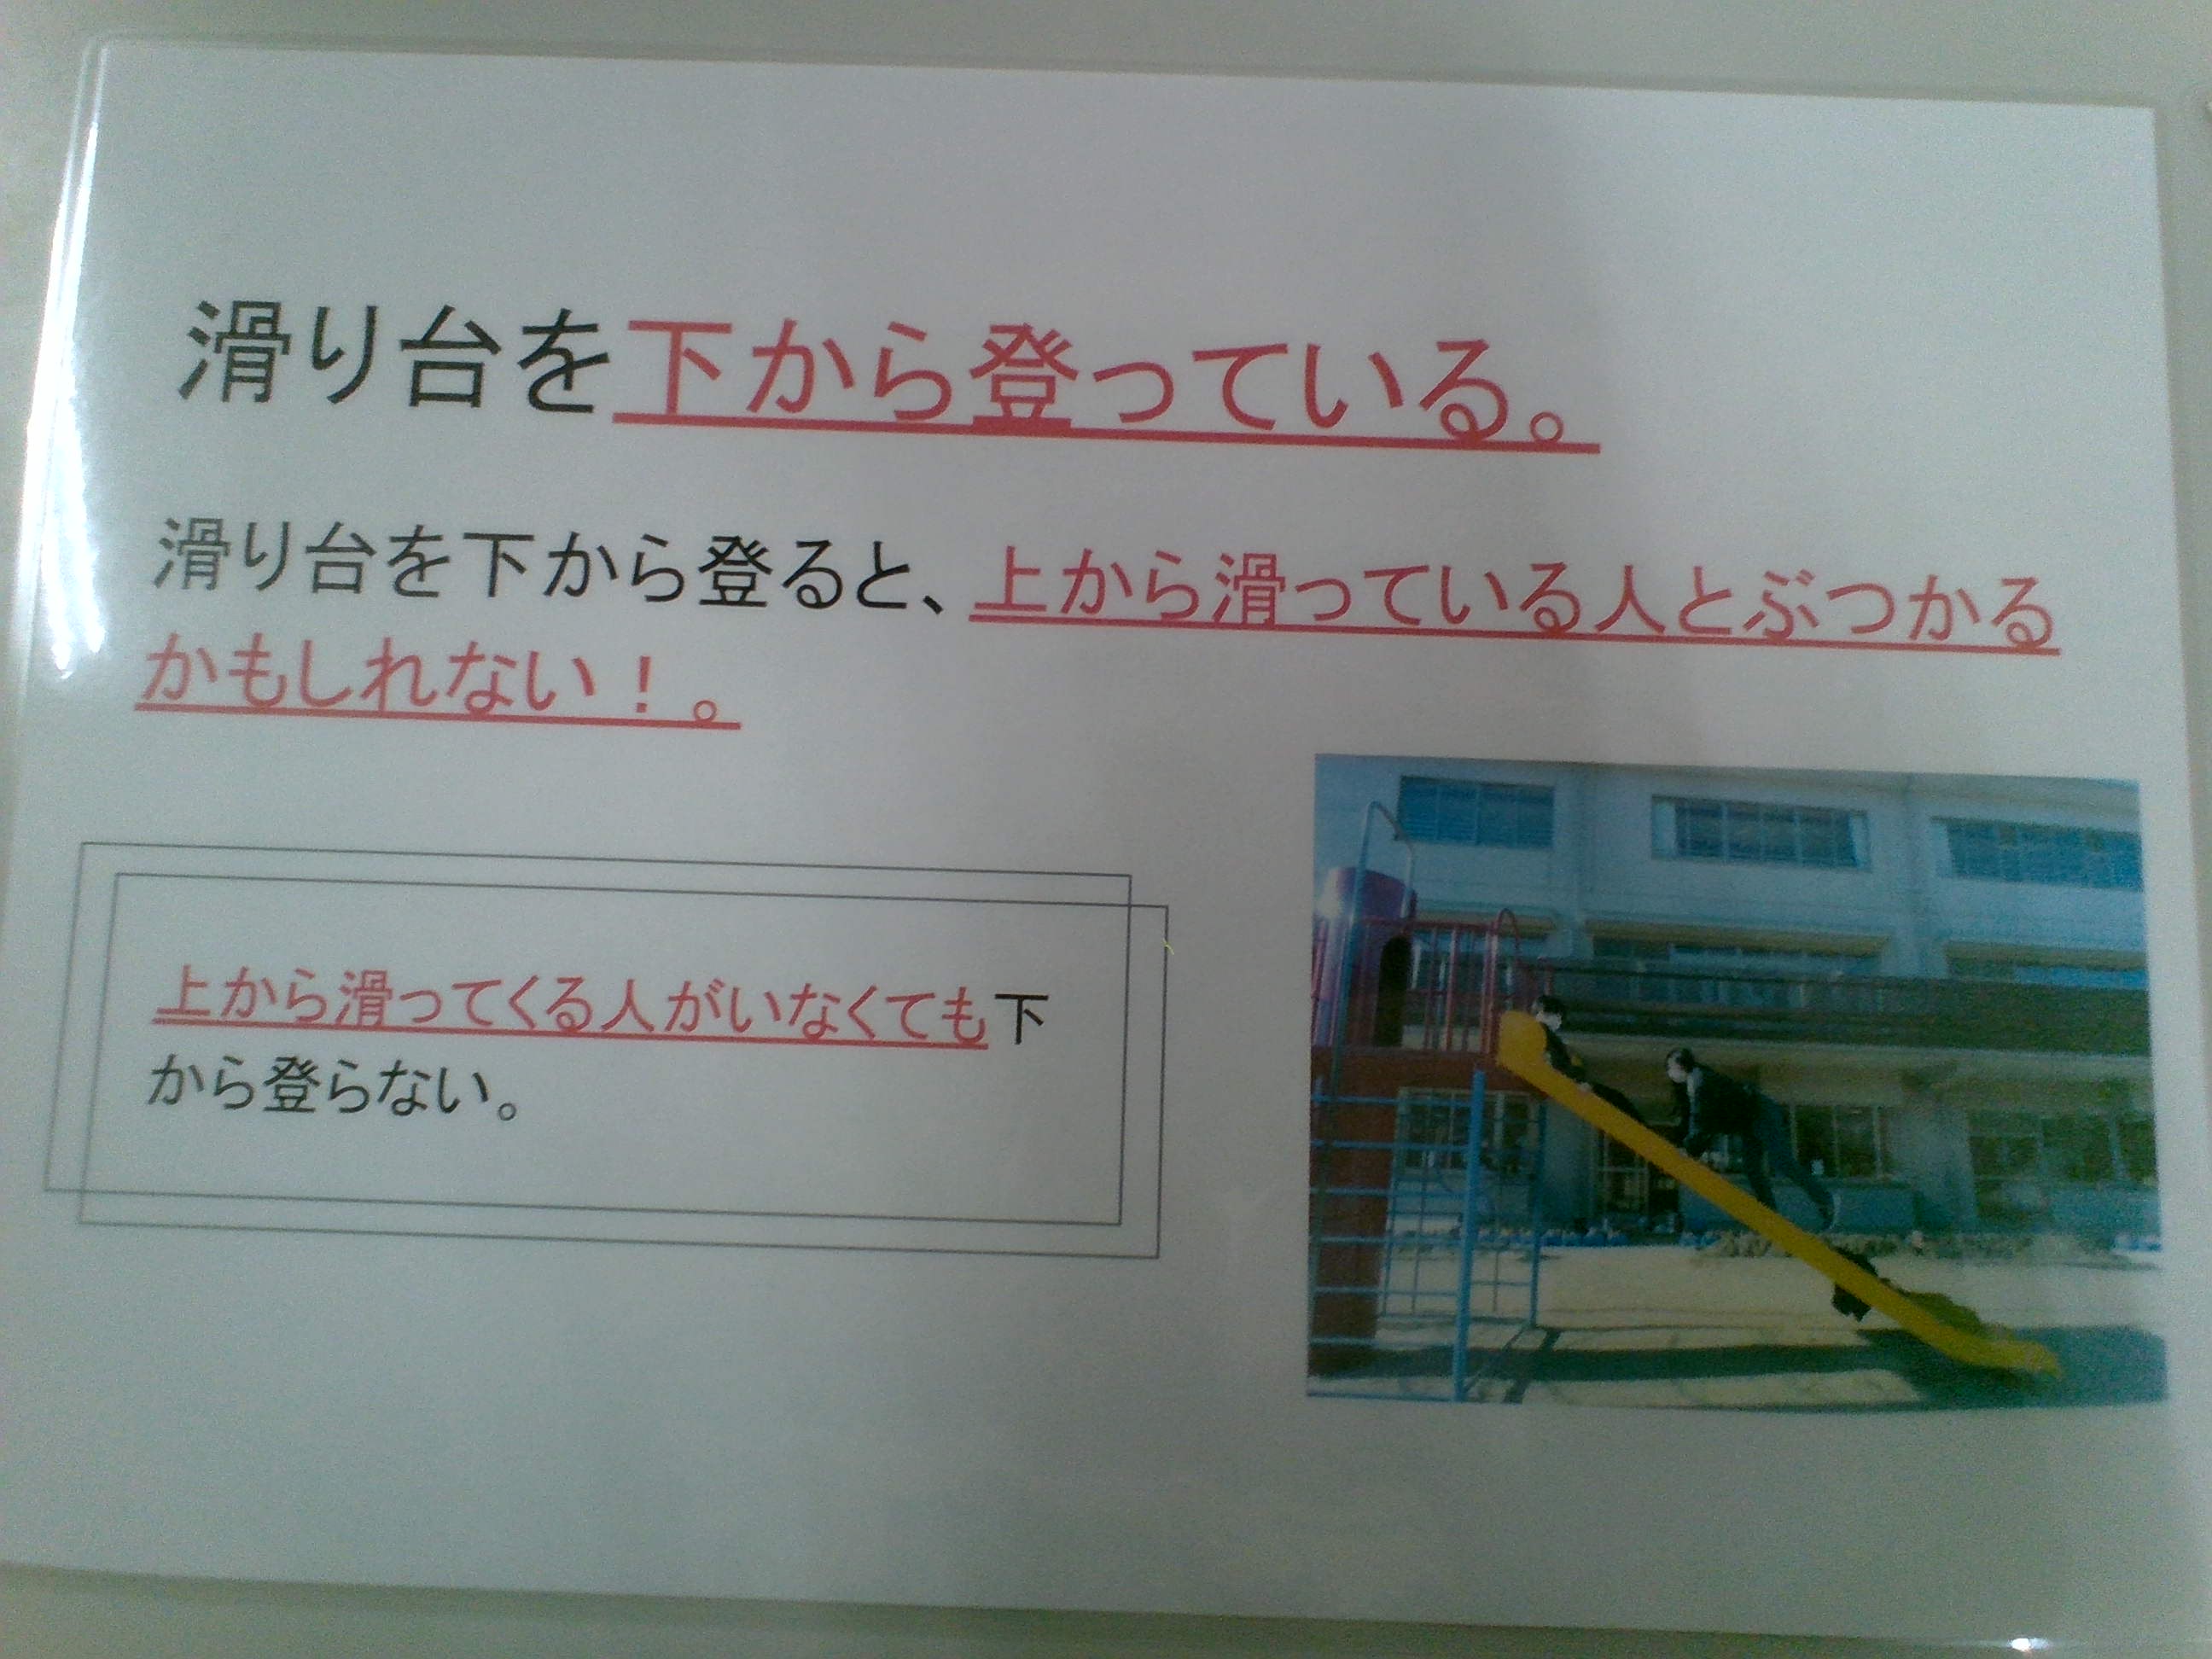 滑り台を下から登っている。
滑り台を下から登ると、上から滑っている人とぶつかる
かもしれない！。
上から滑ってくる人がいなくても下
から登らない。